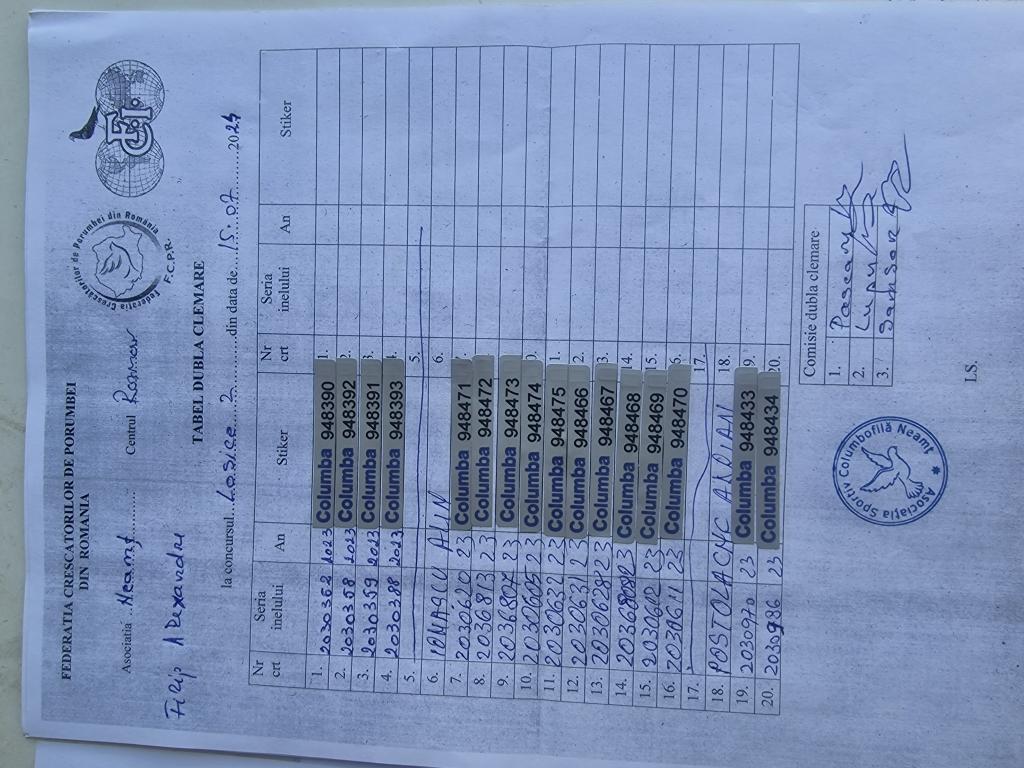 FEDERATIA CRESCATORILOR DE PORUMBEI
DIN ROMANIA
Federația Crescătorilor de Porumbei din România
F.C.P.R.
FCI
Asociatia Neamt Centrul Roman
Filip Alexandru
TABEL DUBLA CLEMARE
la concursul Losice 2 din data de 15.07 2024
Nr crt Seria inelului An Stiker Nr crt Seria inelului An Stiker
1. 2030352 2023 Columba 948390 1.
2. 2030358 2023 Columba 948392 2.
3. 2030359 2023 Columba 948391 3.
4. 2030388 2023 Columba 948393 4.
5. 5.
6. IONASCU ALIN 6.
7. 2030610 23 Columba 948471
8. 2036813 23 Columba 948472
9. 2036807 23 Columba 948473
10. 2030605 23 Columba 948474 0.
11. 2030632 23 Columba 948475 1.
12. 2030631 23 Columba 948466 2.
13. 2030628 23 Columba 948467 3.
14. 23 Columba 948468 14.
15. 2030602 23 Columba 948469 15.
16. 2030611 23 Columba 948470 6.
17. 17.
18. POSTOLACHE ANDIAN 18.
19. 2030970 23 Columba 948433 9.
20. 2030936 23 Columba 948434 20.
Comisie dubla clemare
1.
2. Lupu
3. Samson
Asociația Sportiv Columbofilă Neamț
LS.